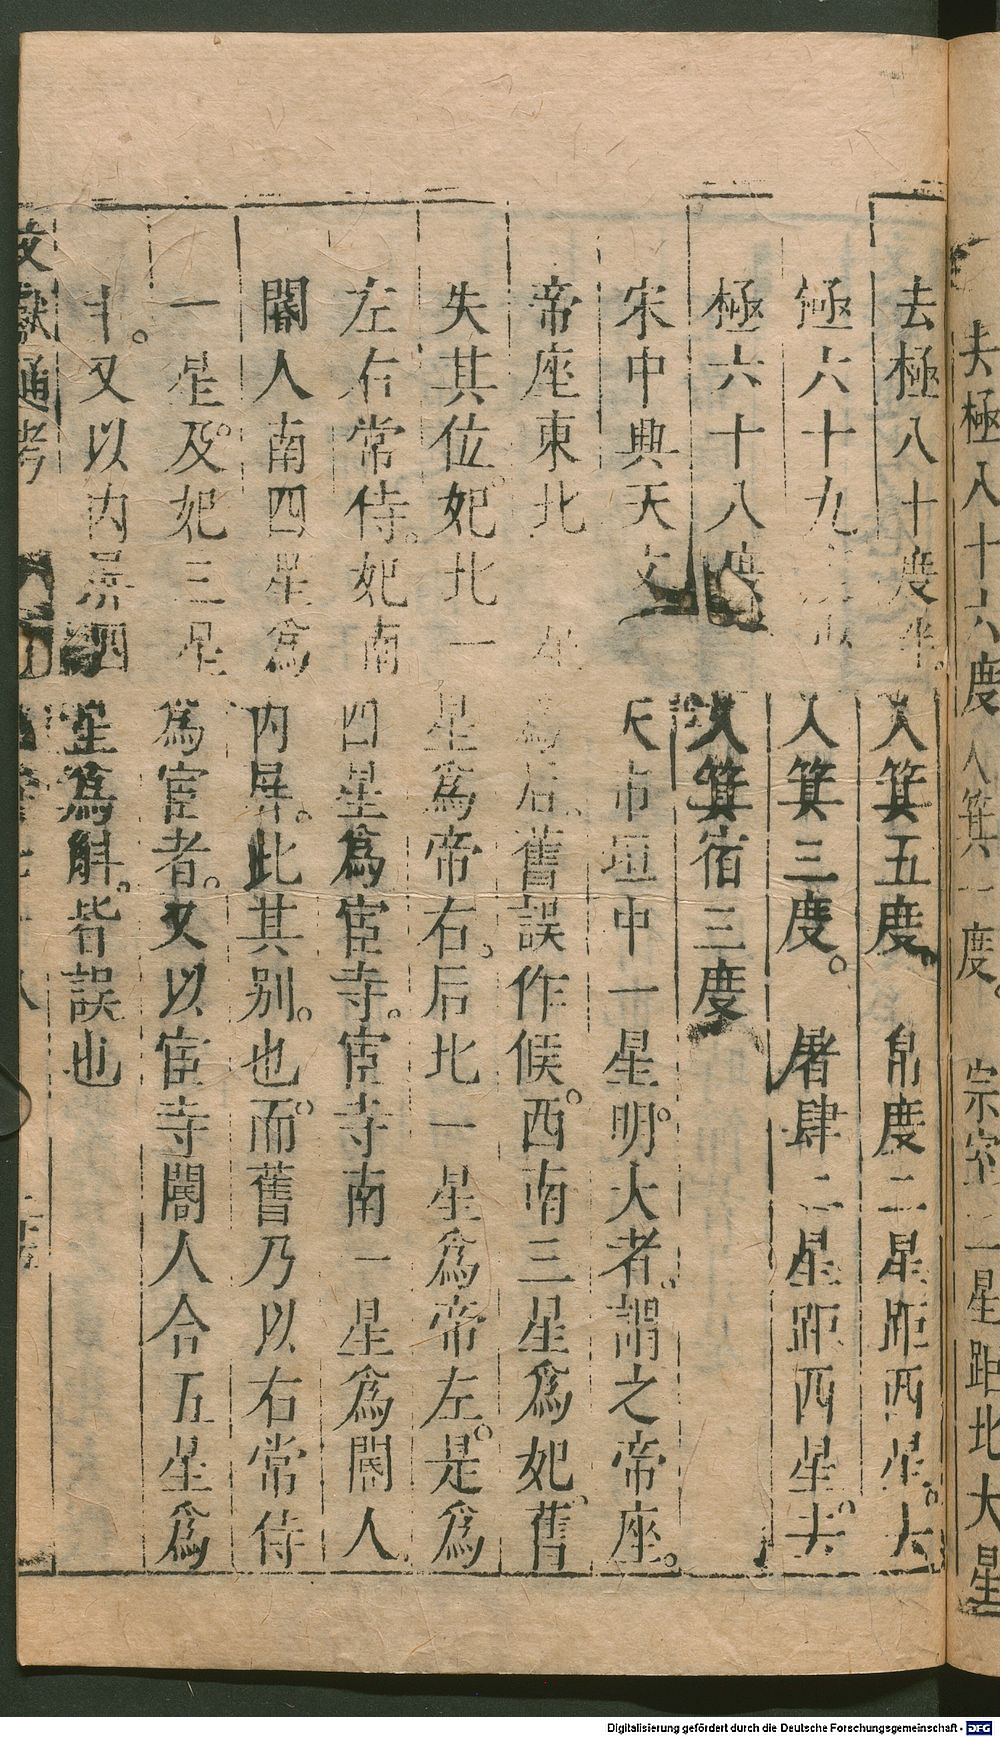 去極八十六度入箕一度。宗室二星距北大星
去極八十度半。入箕五度。帛度二星距西星。去
極六十九度入箕三度。屠肆二星距西星。去
極六十八度入箕宿三度
宋中興天文天市垣中一星。明大者。謂之帝座。
帝座東北星為后。舊誤作候。西南三星為妃。舊
失其位。妃北一星為帝右。后北一星為帝左。是為
左右常侍。妃南四星為宦寺。宦寺南一星為閽人
閽人南四星為內屏。此其別也。而舊乃以右常侍
一星。及妃三星為宦者。又以宦寺閽人令五星為
斗。又以內屏四星為斛。皆誤也
文獻通考
Digitalisierung gefördert durch die Deutsche Forschungsgemeinschaft - DFG